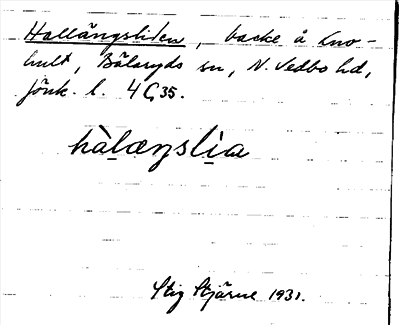 Hallängsliden, backe å Kno-
hult, Bälaryds sn, N. Vedbo hd,
Jönk. l. 4 G 35.
hàlæŋslìa
Stig Stjärne 1931.